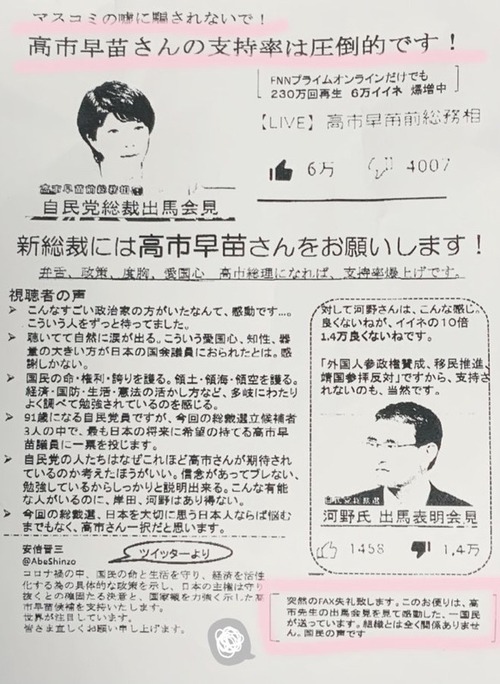 マスコミの嘘に騙されないで！
高市早苗さんの支持率は圧倒的です！
FNNプライムオンラインだけでも
230万回再生 6万イイネ 爆増中
【LIVE】高市早苗前総務相
6万 4007
高市早苗前総務相
自民党総裁出馬会見
新総裁には高市早苗さんをお願いします！
弁舌、政策、度胸、愛国心 高市総理になれば、支持率爆上げです。
視聴者の声
➤ こんなすごい政治家の方がいたなんて、感動です…。
こういう人をずっと待ってました。
➤ 聴いてて自然に涙が出る。こういう愛国心、知性、器
量の大きい方が日本の国会議員におられたとは。感
謝しかない。
➤ 国民の命・権利・誇りを護る。領土・領海・領空を護る。
経済・国防・生活・憲法の活かし方など、多岐にわたり
よく調べて勉強されているのを感じる。
➤ 91歳になる自民党員ですが、今回の総裁選立候補者
3人の中で、最も日本の将来に希望の持てる高市早
苗議員に一票を投じます。
➤ 自民党の人たちはなぜこれほど高市さんが期待されて
いるのか考えたほうがいい。信念があってブレない、
勉強しているからしっかりと説明出来る。こんな有能
な人がいるのに、岸田、河野はあり得ない。
➤ 今回の総裁選、日本を大切に思う日本人ならば悩む
までもなく、高市さん一択だと思います。
対して河野さんは、こんな感じ。
良くないねが、イイネの10倍
1.4万良くないねです。
「外国人参政権賛成、移民推進、
靖国参拝反対」ですから、支持さ
れないのも、当然です。
自民党総裁選
河野氏 出馬表明会見
1458 1.4万
安倍晋三
@AbeShinzo
ツイッターより
コロナ禍の中、国民の命と生活を守り、経済を活性
化する為の具体的な政策を示し、日本の主権は守り
抜くとの確固たる決意と、国家観を力強く示した高
市早苗候補を支持いたします。
世界が注目しています。
皆さま宜しくお願い申し上げます。
突然のFAX失礼致します。このお便りは、高
市先生の出馬会見を見て感動した、一国民
が送っています。組織とは全く関係ありま
せん。国民の声です